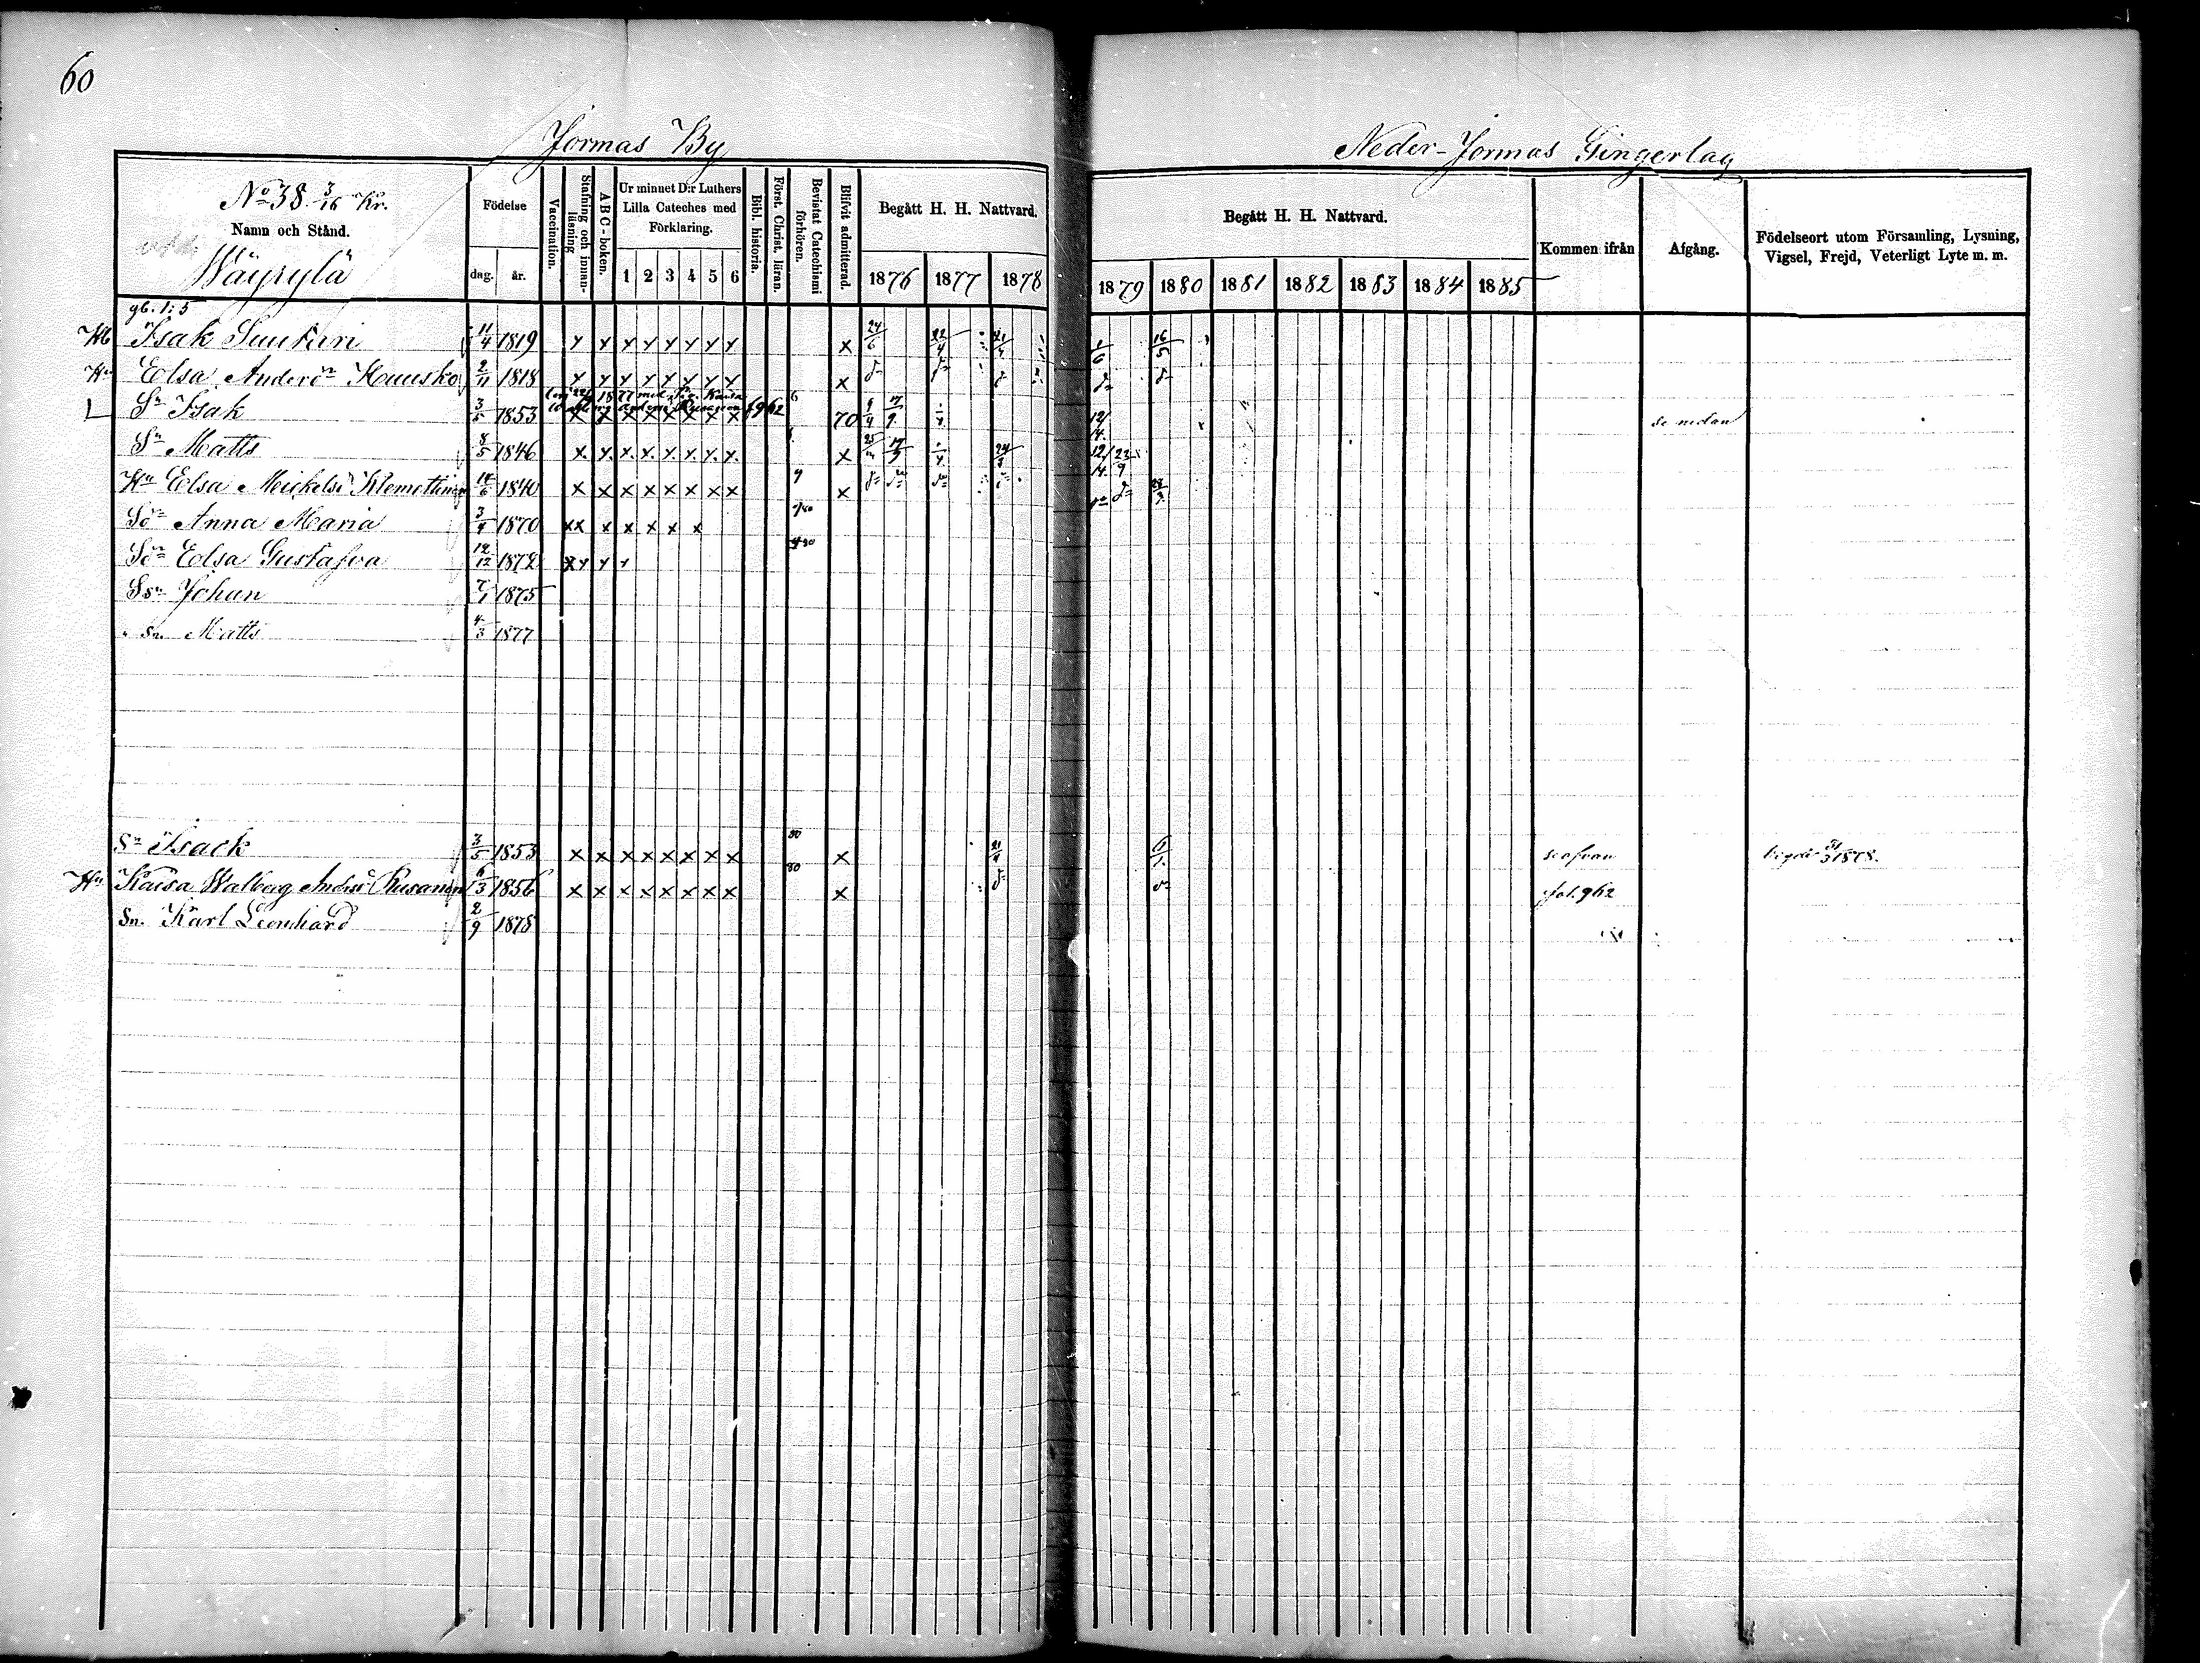 60
Jormas By
Neder-Jormas Gingerlag
No 38 3/16 Kr.
Namn och Stånd.
Wäyrylä
Födelse
dag.
år.
Vaccination.
Stafning och innan-läsning
ABC-boken.
Ur minnet D:r Luthers
Lilla Cateches med
Förklaring.
1 2 3 4 5 6
Bibl. historia.
Först. Christ. läran.
Bevistat Catechismi förhören.
Blifvit admitterad.
Begått H. H. Nattvard.
1876 1877 1878
Begått H. H. Nattvard.
1879 1880 1881 1882 1883 1884 1885
Kommen ifrån
Afgång.
Födelseort utom Församling, Lysning,
Vigsel, Frejd, Veterligt Lyte m. m.
gb. 1:5
Hb Isak Suutari 11/4 1819 x x x x x x x x x 24/6 22/4 1/6 16/5
Hu Elsa Andersn Kuusko 2/11 1818 x x x x x x x x x
Sn Isak 3/5 1853 x x x x x x x x 70 se nedan
Sn Matts 8/5 1846 x x x x x x x x x
Hu Elsa Mickelsn Klemettinen 1840 x x x x x x x x x
Anna Maria 1870 x x x x x x x
Elsa Gustafva 12/12 1872 x x x x
Ssn Johan 1875
Sn. Matts 4/3 1877
Sn Isack 3/5 1853 x x x x x x x x 80 x 21/4 se ofvan vigde 31/3 1878.
Hu Kaisa Walborg Andersn Rusanen 6/3 1856 x x x x x x x x 80 x fol. 962
Sn. Karl Leonhard 2/9 1878